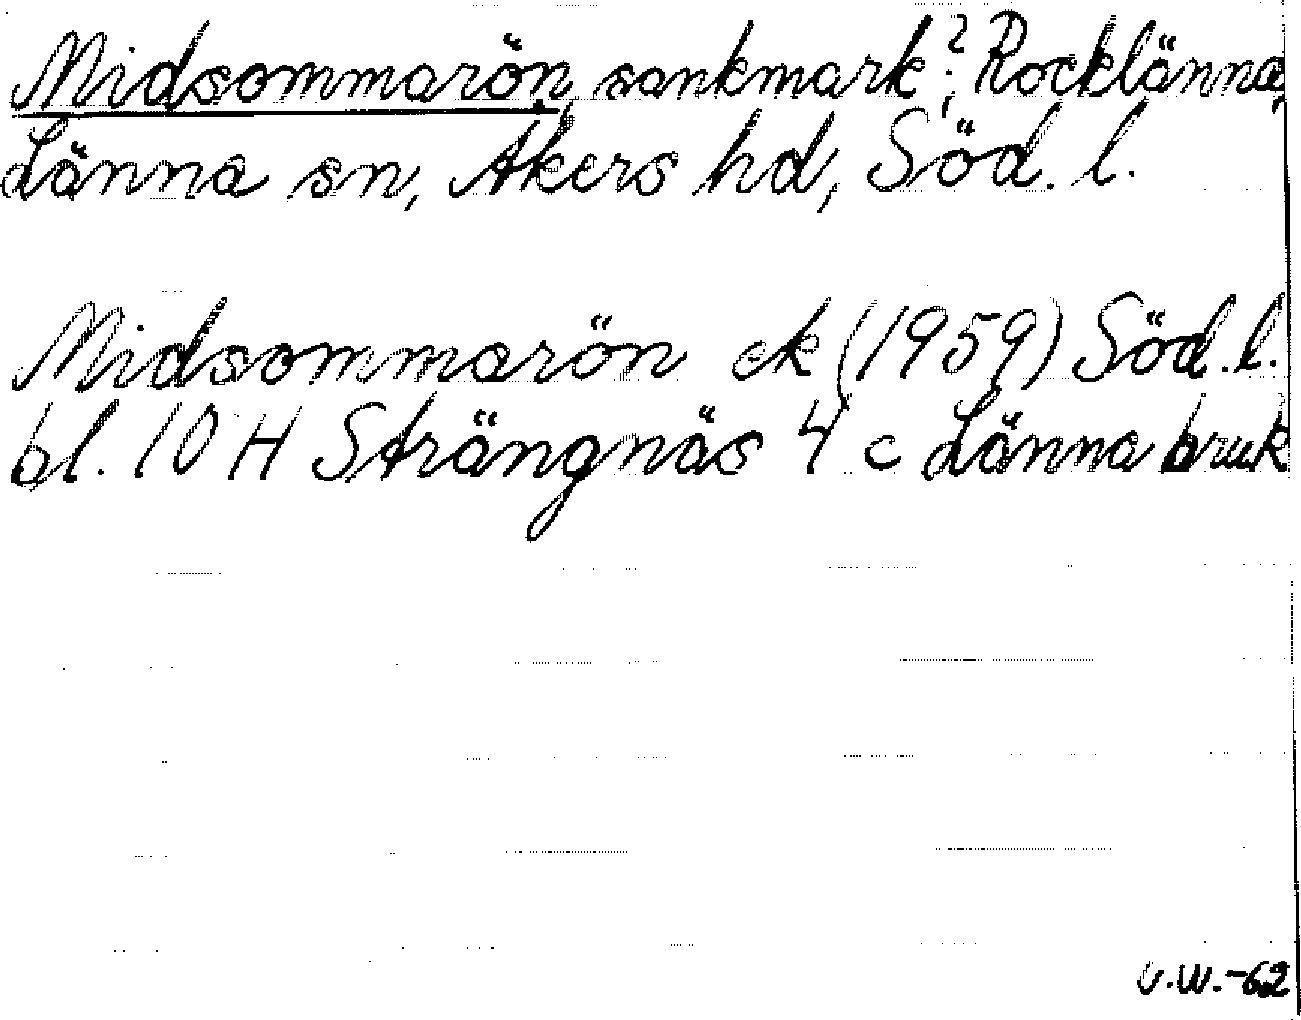 Midsommarön, sankmark?; Rocklänna,
Länna sn, Åkers hd, Söd. l.
Midsommarön ek (1959) Söd. l.
bl. 10 H Strängnäs 4 c Länna bruk
v.W.-62